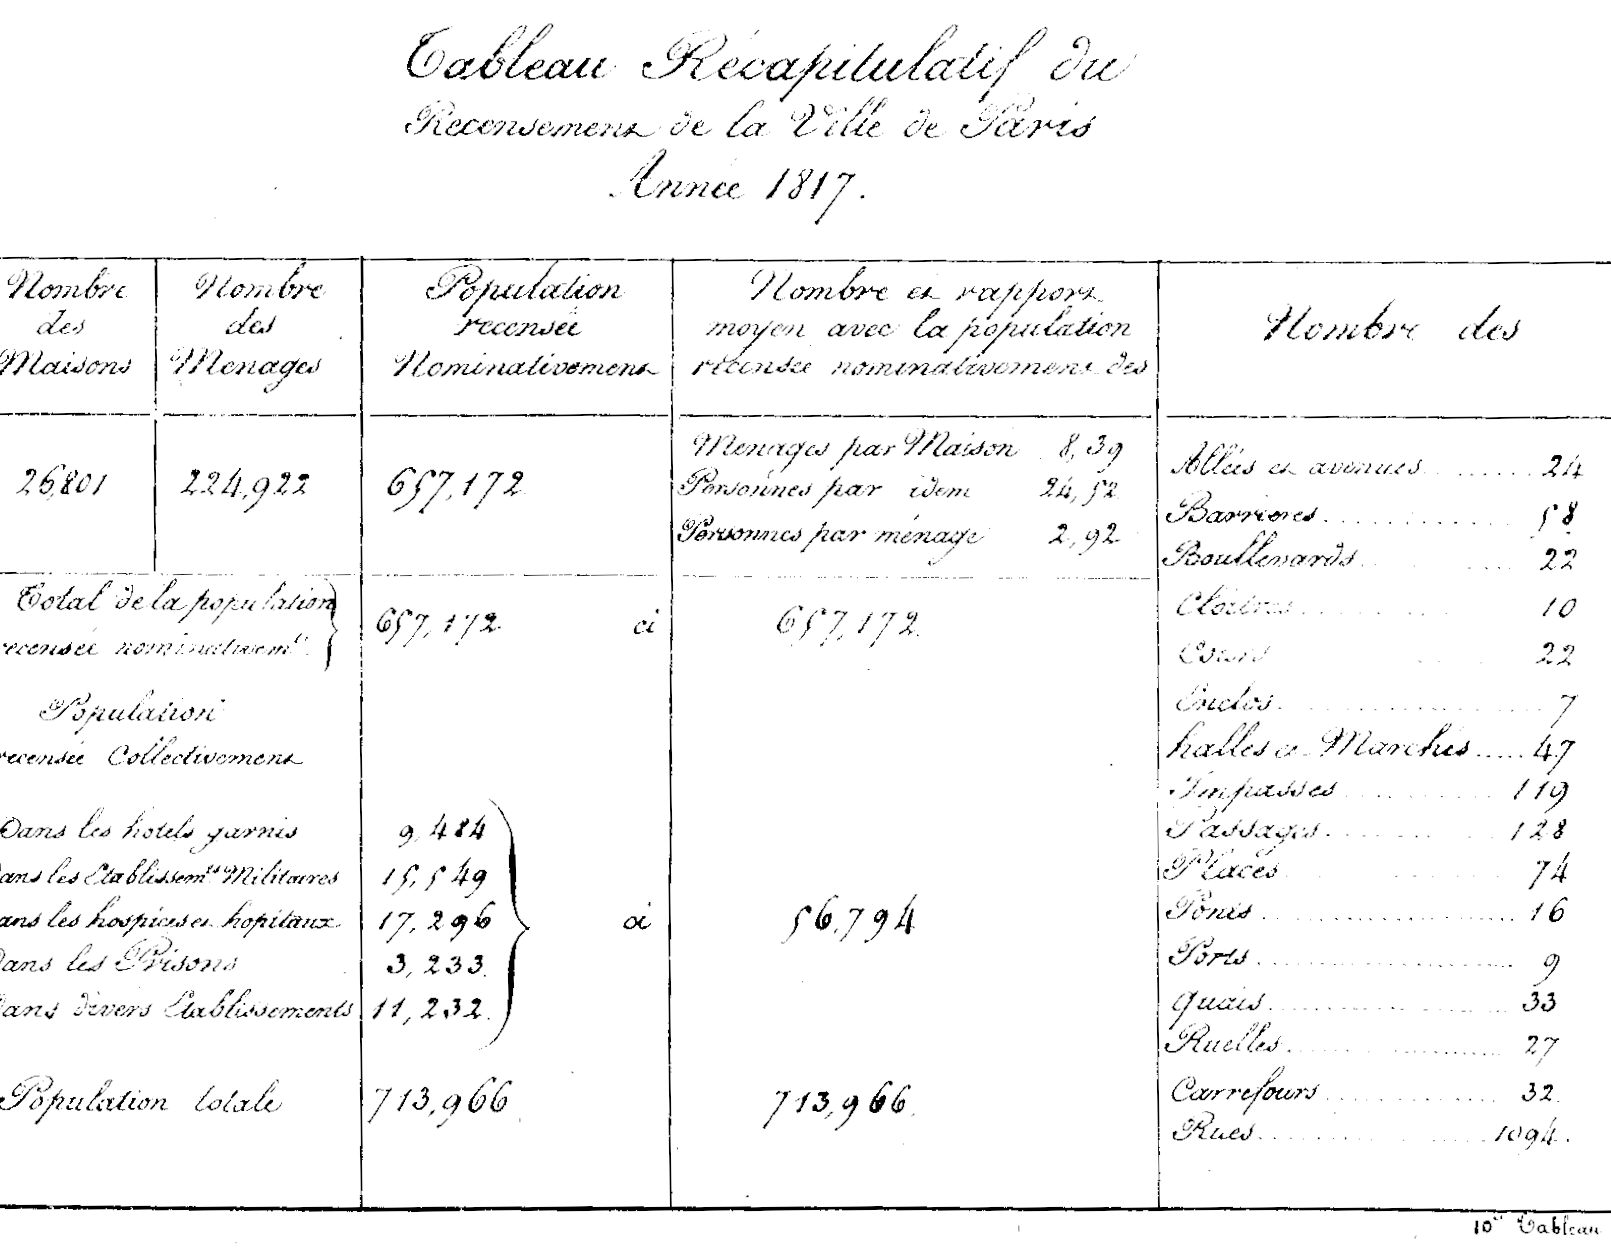 Tableau Récapitulatif du
Recensement de la Ville de Paris
Année 1817.
Nombre
des
Maisons
Nombre
des
Menages
Population
recensée
Nominativement
Nombre et rapport
moyen avec la population
recensée nominativement des
Nombre des
26,801
224,922
657,172
Menages par Maison 8,39
Personnes par idem 24,52
Personnes par ménage 2,92
Total de la population
recensée nominativemt.
657,172 ci 657,172.
Population
recensée Collectivement
Dans les hotels garnis 9,484
Dans les Etablissemts Militaires 15,549
Dans les hospices et hopitaux 17,296
Dans les Prisons 3,233.
Dans divers Etablissements 11,232.
ci 56,794
Population totale 713,966 713,966.
Allées et avenues 24
Barrieres 58
Boullevards 22
Cloitres 10
Cours 22
Enclos 7
halles et Marchés 47
Impasses 119
Passages 128
Places 74
Ponts 16
Ports 9
quais 33
Ruelles 27
Carrefours 32.
Rues 1094.
10e Tableau